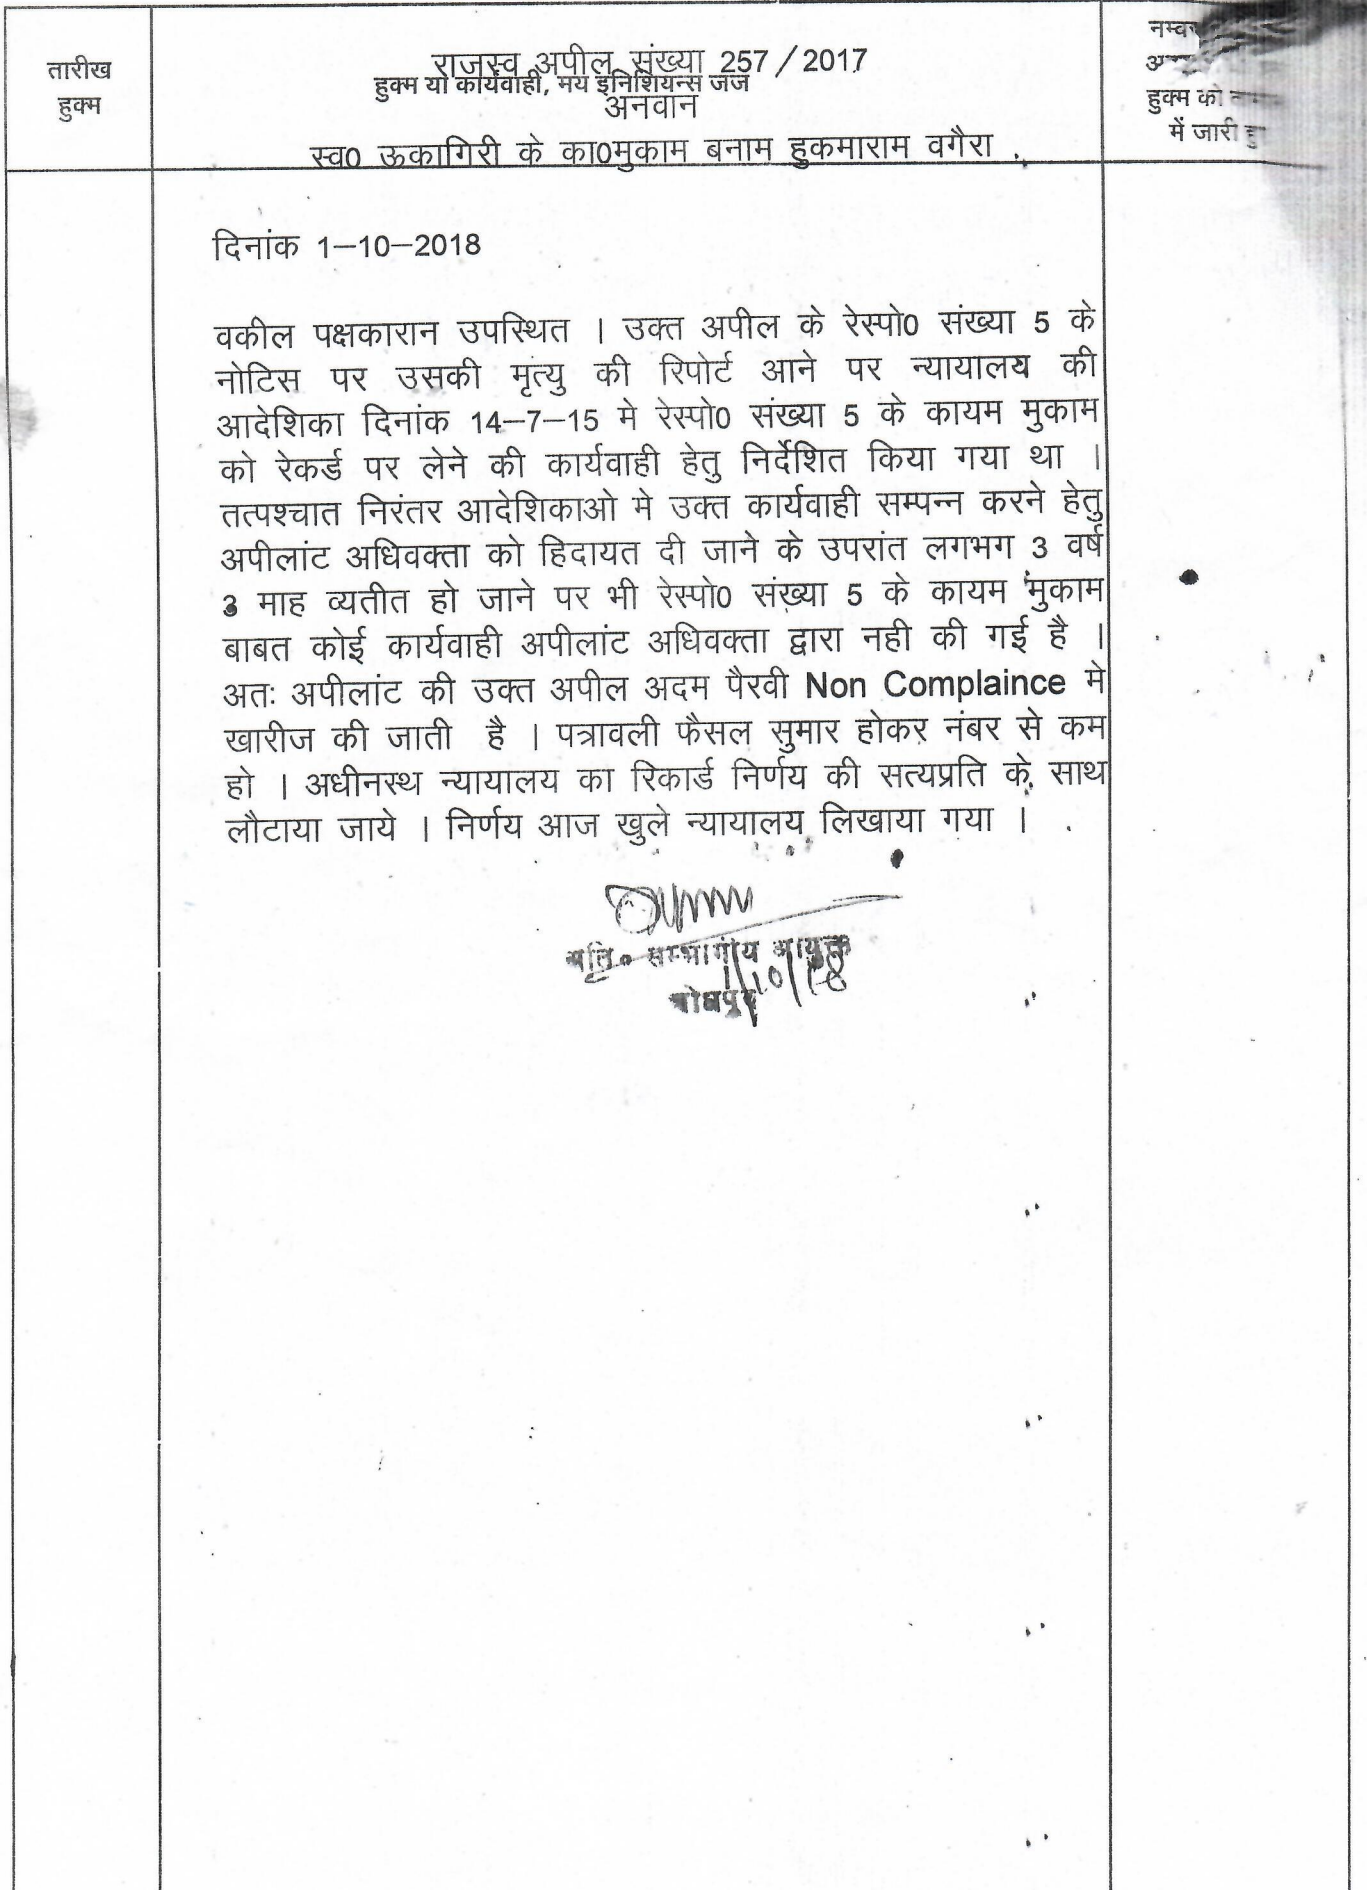 तारीख
हुक्म
राजस्व अपील संख्या 257/2017
हुक्म या कार्यवाही, मय इनिशियन्स जज
अनवान
स्व0 ऊकागिरी के का0मुकाम बनाम हुकमाराम वगैरा
हुक्म को
में जारी
दिनांक 1–10–2018
वकील पक्षकारान उपस्थित । उक्त अपील के रेस्पो0 संख्या 5 के
नोटिस पर उसकी मृत्यु की रिपोर्ट आने पर न्यायालय की
आदेशिका दिनांक 14–7–15 मे रेस्पो0 संख्या 5 के कायम मुकाम
को रेकर्ड पर लेने की कार्यवाही हेतु निर्देशित किया गया था ।
तत्पश्चात निरंतर आदेशिकाओ मे उक्त कार्यवाही सम्पन्न करने हेतु
अपीलांट अधिवक्ता को हिदायत दी जाने के उपरांत लगभग 3 वर्ष
3 माह व्यतीत हो जाने पर भी रेस्पो0 संख्या 5 के कायम मुकाम
बाबत कोई कार्यवाही अपीलांट अधिवक्ता द्वारा नही की गई है ।
अतः अपीलांट की उक्त अपील अदम पैरवी Non Complaince मे
खारीज की जाती है । पत्रावली फैसल सुमार होकर नंबर से कम
हो । अधीनस्थ न्यायालय का रिकार्ड निर्णय की सत्यप्रति के साथ
लौटाया जाये । निर्णय आज खुले न्यायालय लिखाया गया ।
अति० सम्भागीय आयुक्त
1/10/18
जोधपुर